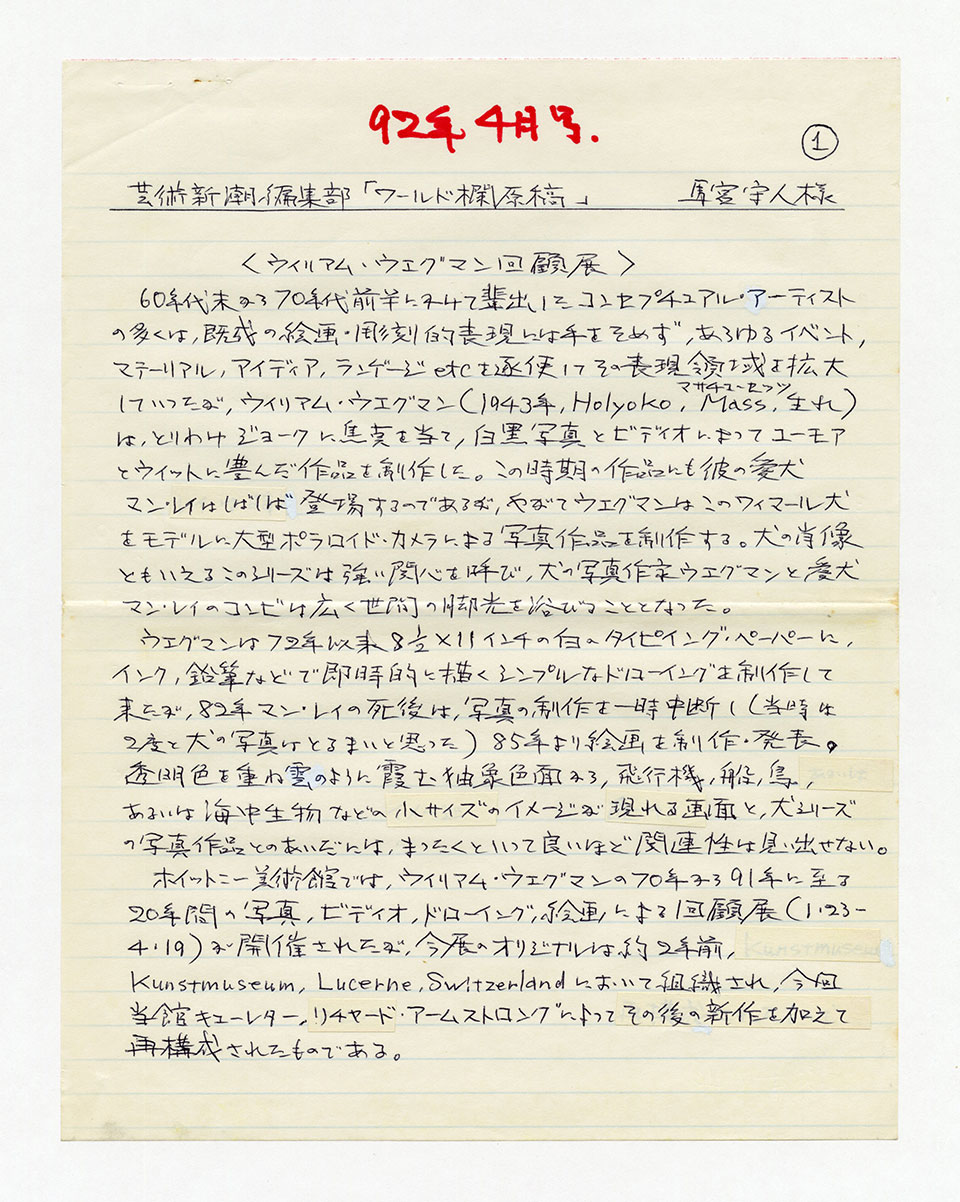 92年4月号.
①
芸術新潮編集部「ワールド欄原稿」 馬宮守人様
〈ウィリアム・ウエグマン回顧展〉
60年代末から70年代前半にかけて輩出したコンセプチュアル・アーティスト
の多くは,既成の絵画・彫刻的表現には手をそめず,あらゆるイベント,
マテーリアル,アイディア,ランゲージetcを逐使してその表現領域を拡大
マサチューセッツ
していったが,ウィリアム・ウエグマン(1943年,Holyoko,Mass,生れ)
は,とりわけジョークに焦莫を当て,白黒写真とビディオによってユーモア
とウィットに豊んだ作品を制作した。この時期の作品にも彼の愛犬
マン・レイはしばしば登場するのであるが,やがてウエグマンはこのワィマール犬
をモデルに大型ポラロイド・カメラによる写真作品を制作する。犬の肖像
ともいえるこのシリーズは強い関心を呼び,犬の写真作家ウエグマンと愛犬
マン・レイのコンビは広く世間の脚光を浴びることとなった。
ウエグマンは72年以来8½×11インチの白のタイピイング・ペーパーに,
インク,鉛筆などで即時的に描くシンプルなドローイングを制作して
来たが,82年マン・レイの死後は,写真の制作を一時中断し(当時は
2度と犬の写真はとるまいと思った)85年より絵画を制作・発表。
透明色を重ね雲のように霞む抽象色面から,飛行機,船,鳥,
あるいは海中生物などの小サイズのイメージが現れる画面と,犬シリーズ
の写真作品とのあいだには,まったくといって良いほど関連性は見い出せない。
ホイットニー美術館では,ウィリアム・ウエグマンの70年から91年に至る
20年間の写真,ビディオ,ドローイング,絵画による回顧展(1・23-
4・19)が開催されたが,今展のオリジナルは,約2年前,
Kunstmuseum, Lucerne, Switzerlandにおいて組織され,今回
当館キューレター,リチャード・アームストロングによってその後の新作を加えて
再構成されたものである。